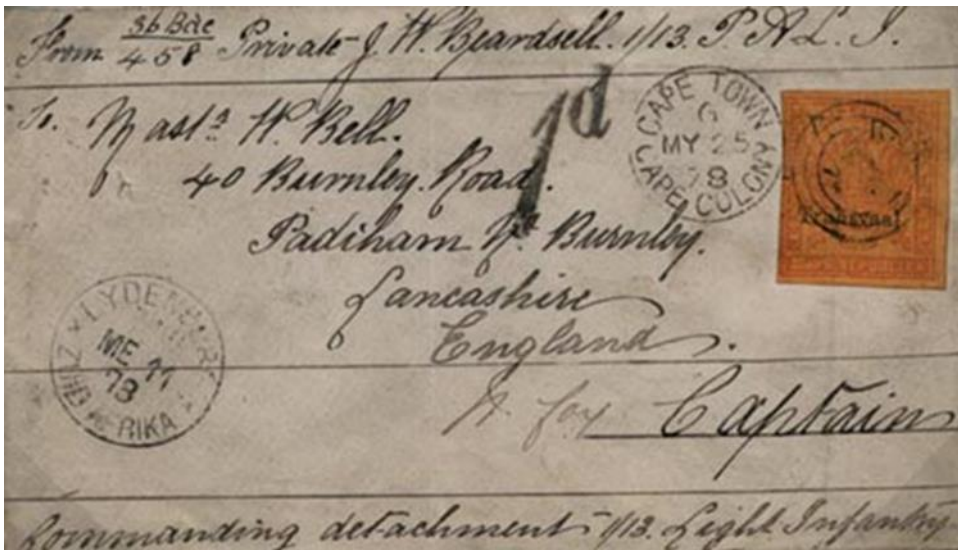 From 36 Bde / 458 Private J. H. Beardsell. 1/13. P. A. L. I.
To. Mastr H. Bell.
40 Burnley Road.
Padiham Nr Burnley.
Lancashire
England.
1d
CAPE TOWN
G
MY 25
78
CAPE COLONY
Transvaal
LYDENBURG
ME 11
78
ZUID AFRIKA
Captain
Commanding detachment 1/13. Light Infantry